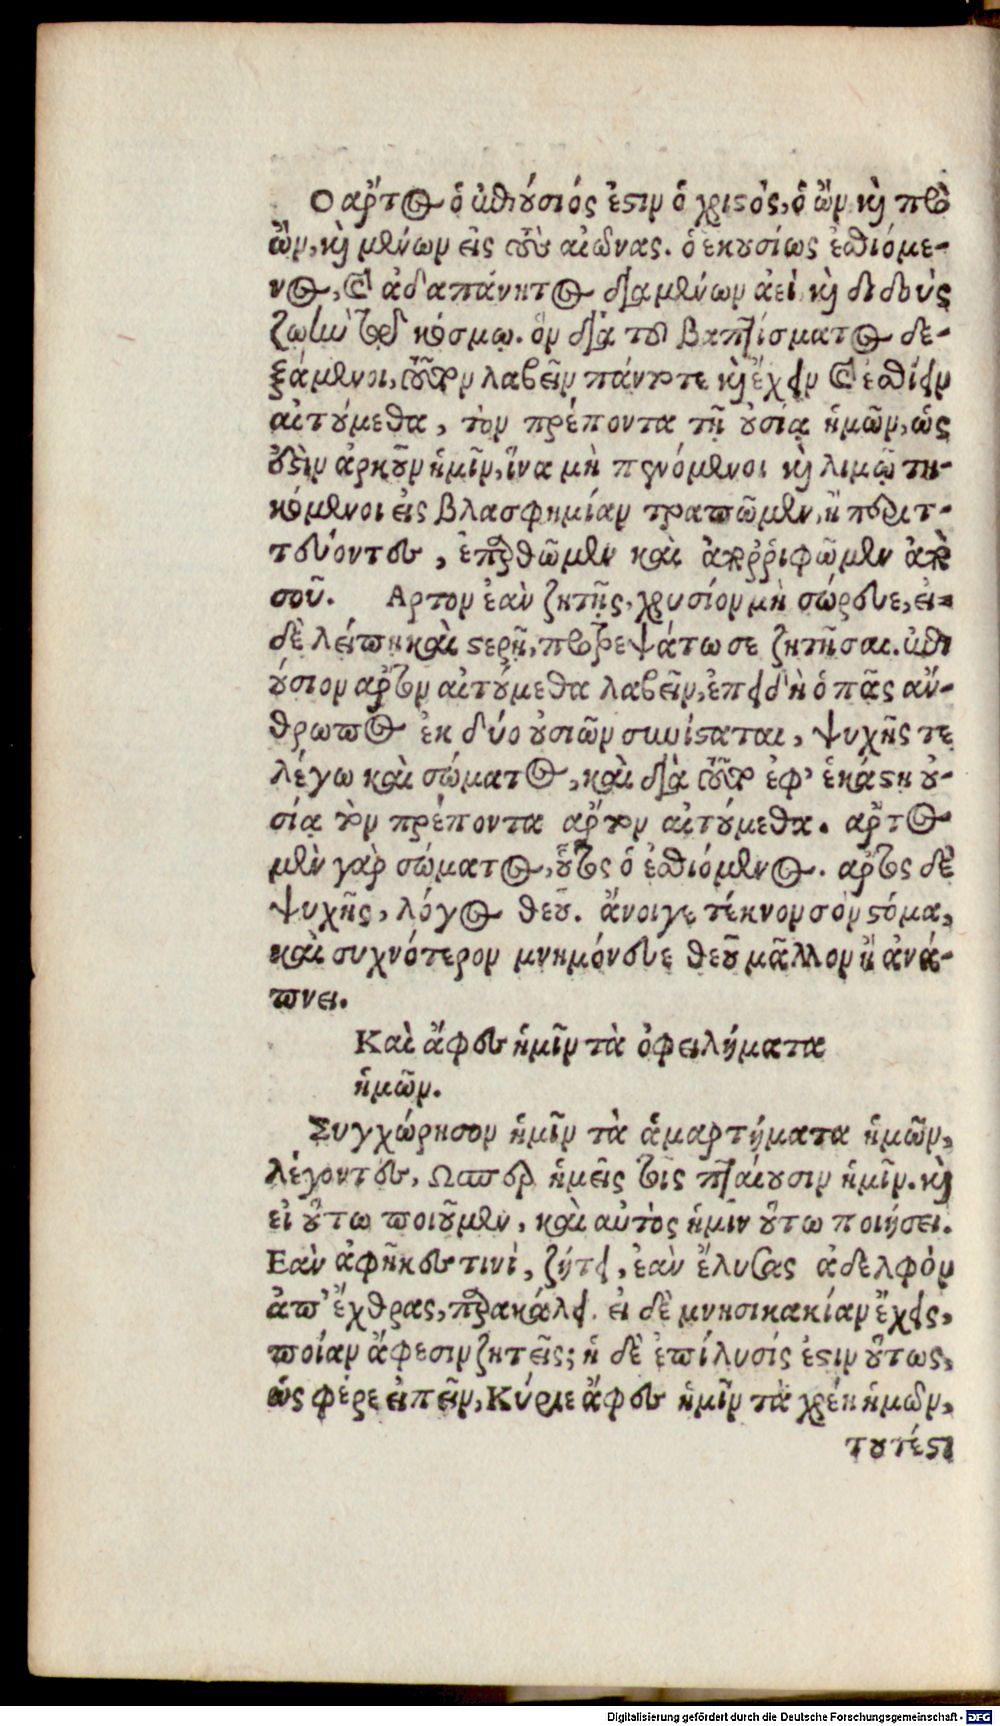 Ο ἄρτος ὁ ἐπιούσιός ἐστιν ὁ χριστὸς, ὁ ὢν καὶ προ
ὢν, καὶ μένων εἰς τοὺς αἰῶνας. ὁ ἑκουσίως ἐσθιόμε-
νος, καὶ ἀδαπάνητος διαμένων ἀεὶ καὶ διδοὺς
ζωὴν τῷ κόσμῳ. ὃν διὰ τοῦ βαπτίσματος δε-
ξάμενοι, τοῦτον λαβεῖν πάντοτε καὶ ἔχειν καὶ ἐσθίειν
αἰτούμεθα, τὸν πρέποντα τῇ οὐσίᾳ ἡμῶν, ὡς
οὖσιν ἀρκοῦν ἡμῖν, ἵνα μὴ πεινόμενοι καὶ λιμῷ τη-
κόμενοι εἰς βλασφημίαν τραπῶμεν, ἢ περιτ-
τεύοντες, ἐπαρθῶμεν καὶ ἀποῤῥιφῶμεν ἀπὸ
σοῦ. Αρτον ἐὰν ζητῇς, χρυσίον μὴ σώρευε, εἰ-
δὲ λείπῃ καὶ στερῇ, προτρεψάτω σε ζητῆσαι. ἐπι
ούσιον ἄρτον αἰτούμεθα λαβεῖν, ἐπειδὴ ὁ πᾶς ἄν-
θρωπος ἐκ δύο οὐσιῶν συνίσταται, ψυχῆς τε
λέγω καὶ σώματος, καὶ διὰ τοῦτο ἐφ' ἑκάστῃ οὐ-
σίᾳ τὸν πρέποντα ἄρτον αἰτούμεθα. ἄρτος
μὲν γὰρ σώματος, οὗτος ὁ ἐσθιόμενος. ἄρτος δὲ
ψυχῆς, λόγος θεοῦ. ἄνοιγε τέκνον σὸν στόμα,
καὶ συχνότερον μνημόνευε θεοῦ μᾶλλον ἢ ἀνά-
πνει.
Καὶ ἄφες ἡμῖν τὰ ὀφειλήματα
ἡμῶν.
Συγχώρησον ἡμῖν τὰ ἁμαρτήματα ἡμῶν,
λέγοντες, Ωσπερ ἡμεῖς τοῖς πταίουσιν ἡμῖν. καὶ
εἰ οὕτω ποιοῦμεν, καὶ αὐτὸς ἡμῖν οὕτω ποιήσει.
Εὰν ἀφῆκες τινὶ, ζήτει, ἐὰν ἔλυσας ἀδελφὸν
ἀπ' ἔχθρας, παρακάλει. εἰ δὲ μνησικακίαν ἔχεις,
ποίαν ἄφεσιν ζητεῖς; ἡ δὲ ἐπίλυσίς ἐστιν οὕτως,
ὡς φέρε εἰπεῖν, Κύριε ἄφες ἡμῖν τὰ χρέη ἡμῶν,
τουτέστι
Digitalisierung gefördert durch die Deutsche Forschungsgemeinschaft - DFG